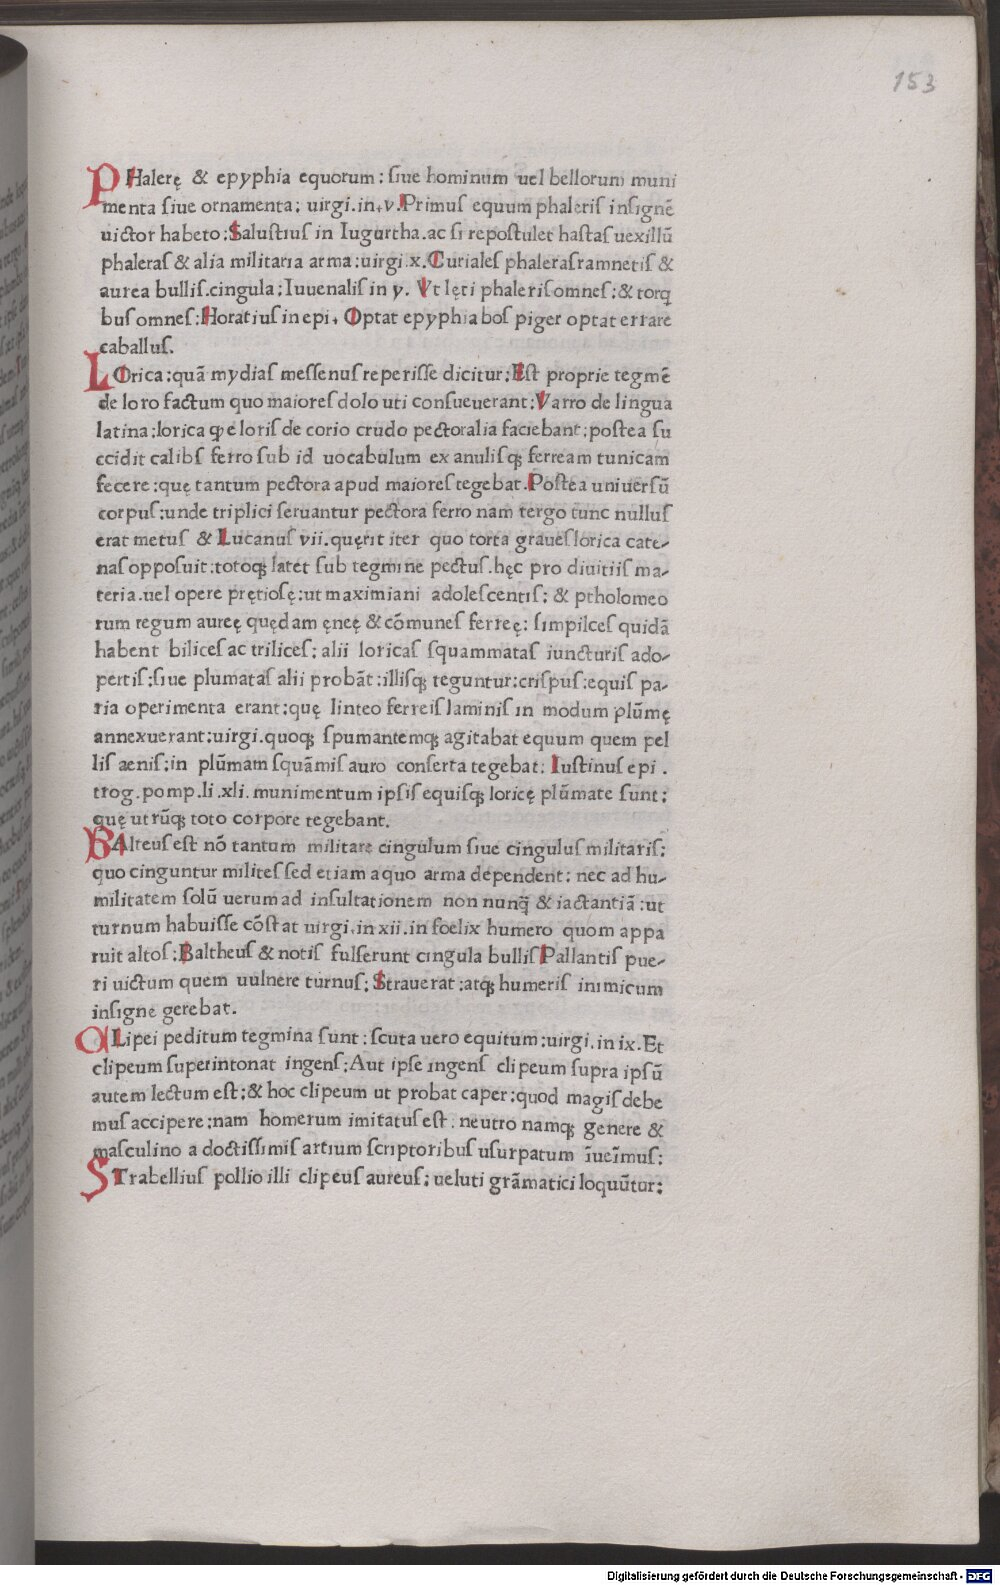 153
PHalerę & epyphia equorum: ſiue hominum uel bellorum muni
menta ſiue ornamenta; uirgi.in.v.Primus equum phaleriſ inſignē
uictor habeto:Saluſtiuſ in Iugurtha.ac ſi repoſtulet haſtaſ uexillū
phaleraſ & alia militaria arma:uirgi.x.Euriales phaleraſramnetiſ &
aurea bulliſ.cingula;Iuuenaliſ in y. Vt lęti phaleriſomneſ:& torq
buſomneſ:Horatiuſ in epi. Optat epyphia boſ piger optat errare
caballuſ.
LOrica:quā mydiaſ meſſenuſ reperiſſe dicitur:Eſt proprie tegmē
de loro factum quo maioreſ dolo uti conſueuerant:Varro de lingua
latina:lorica ꝙ e loriſ de corio crudo pectoralia faciebant:poſtea ſu
ccidit calibſ ferro ſub id uocabulum ex anuliſqꝫ ferream tunicam
fecere:quę tantum pectora apud maioreſ tegebat.Poſtea uniuerſū
corpuſ:unde triplici ſeruantur pectora ferro nam tergo tunc nulluſ
erat metuſ & Lucanuſ vii.quęrit iter quo torta graueſ lorica cate-
naſ oppoſuit:totoqꝫ latet ſub tegmine pectuſ.hęc pro diuitiiſ ma-
teria.uel opere prętioſę:ut maximiani adoleſcentiſ: & ptholomeo
rum regum aureę quędam ęneę & cōmuneſ ferreę: ſimpilceſ quidā
habent biliceſ ac triliceſ: alii loricaſ ſquammataſ iuncturiſ ado-
pertiſ:ſiue plumataſ alii probāt:illiſqꝫ teguntur:criſpuſ:equiſ pa-
ria operimenta erant:quę linteo ferreiſ laminiſ in modum plūmę
annexuerant:uirgi.quoqꝫ ſpumantemqꝫ agitabat equum quem pel
liſ aeniſ:in plūmam ſquāmiſ auro conſerta tegebat: Iuſtinuſ epi.
trog.pomp.li.xli.munimentum ipſiſ equiſqꝫ loricę plūmate ſunt:
quę utrūqꝫ toto corpore tegebant.
BAlteuſ eſt nō tantum militare cingulum ſiue cinguluſ militariſ:
quo cinguntur militeſ ſed etiam a quo arma dependent: nec ad hu-
militatem ſolū uerum ad inſultationem non nunq̄ & iactantiā:ut
turnum habuiſſe cōſtat uirgi.in xii.in foelix humero quom appa
ruit altoſ:Baltheuſ & notiſ fulſerunt cingula bulliſ Pallantiſ pue-
ri uictum quem uulnere turnuſ: Strauerat:atqꝫ humeriſ inimicum
inſigne gerebat.
CLipei peditum tegmina ſunt: ſcuta uero equitum:uirgi.in ix.Et
clipeum ſuperintonat ingenſ:Aut ipſe ingenſ clipeum ſupra ipſū
autem lectum eſt:& hoc clipeum ut probat caper:quod magiſ debe
muſ accipere:nam homerum imitatuſ eſt. neutro namqꝫ genere &
maſculino a doctiſſimiſ artium ſcriptoribuſ uſurpatum īueīmuſ:
STrabelliuſ pollio illi clipeuſ aureuſ: ueluti grāmatici loquūtur:
Digitalisierung gefördert durch die Deutsche Forschungsgemeinschaft - DFG